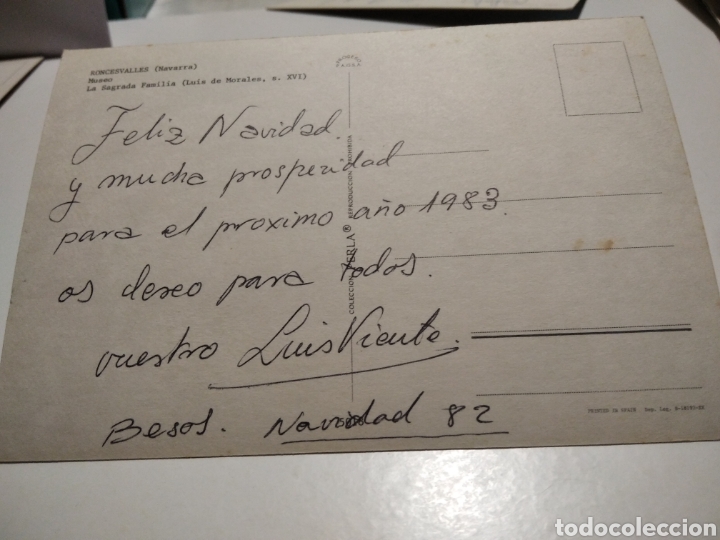 RONCESVALLES (Navarra)
Museo
La Sagrada Familia (Luis de Morales, s. XVI)
Feliz Navidad.
y mucha prosperidad
para el proximo año 1983.
os deseo para todos.
vuestro Luis Vicente.
Besos. Navidad 82
COLECCION PERLA® REPRODUCCION PROHIBIDA
PRINTED IN SPAIN Dep. Leg.
todocoleccion